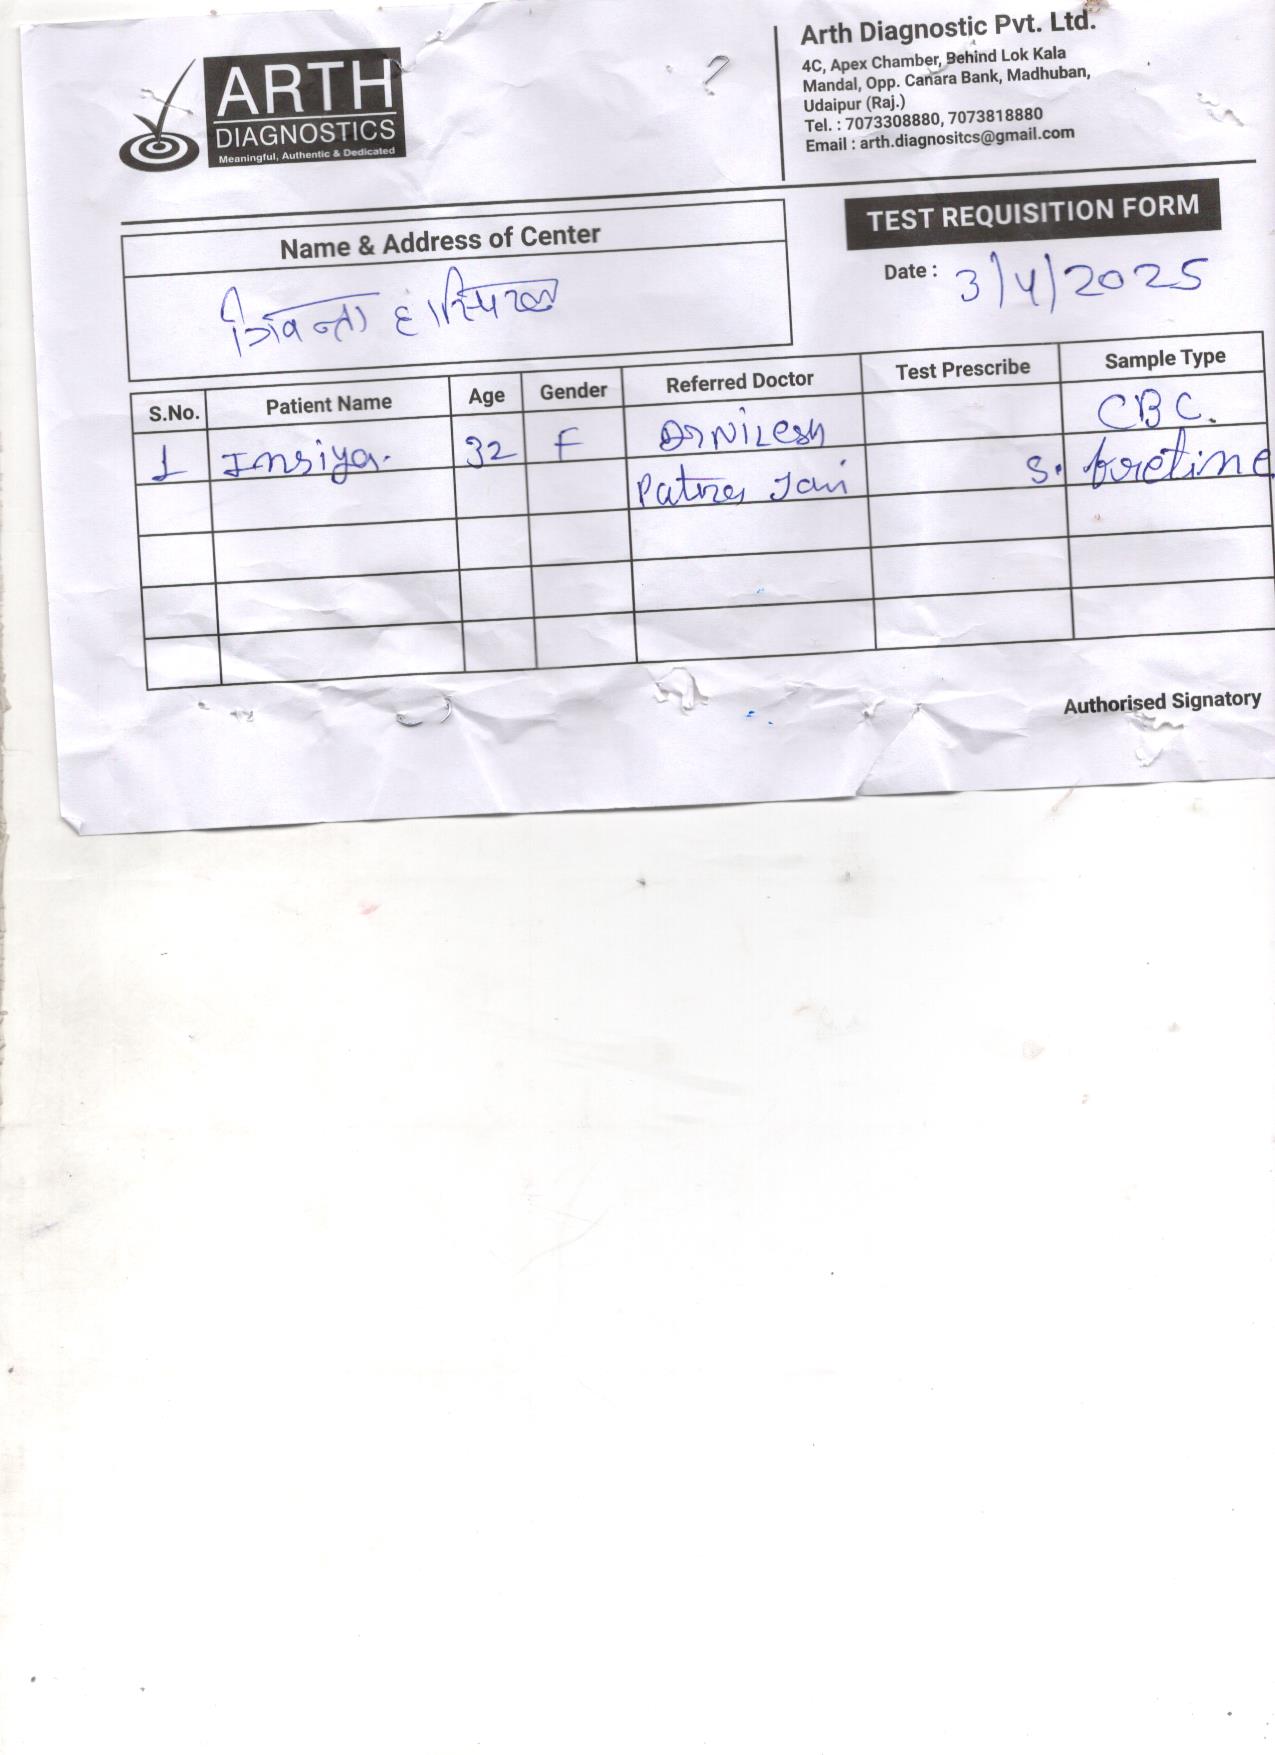 ARTH
DIAGNOSTICS
Meaningful, Authentic & Dedicated
Arth Diagnostic Pvt. Ltd.
4C, Apex Chamber, Behind Lok Kala
Mandal, Opp. Canara Bank, Madhuban,
Udaipur (Raj.)
Tel. : 7073308880, 7073818880
Email : arth.diagnositcs@gmail.com
TEST REQUISITION FORM
Date : 3/4/2025
Name & Address of Center
हास्पिटल
S.No. Patient Name Age Gender Referred Doctor Test Prescribe Sample Type
1 Insiya. 32 F Dr NILesh CBC.
Jain S.
Authorised Signatory